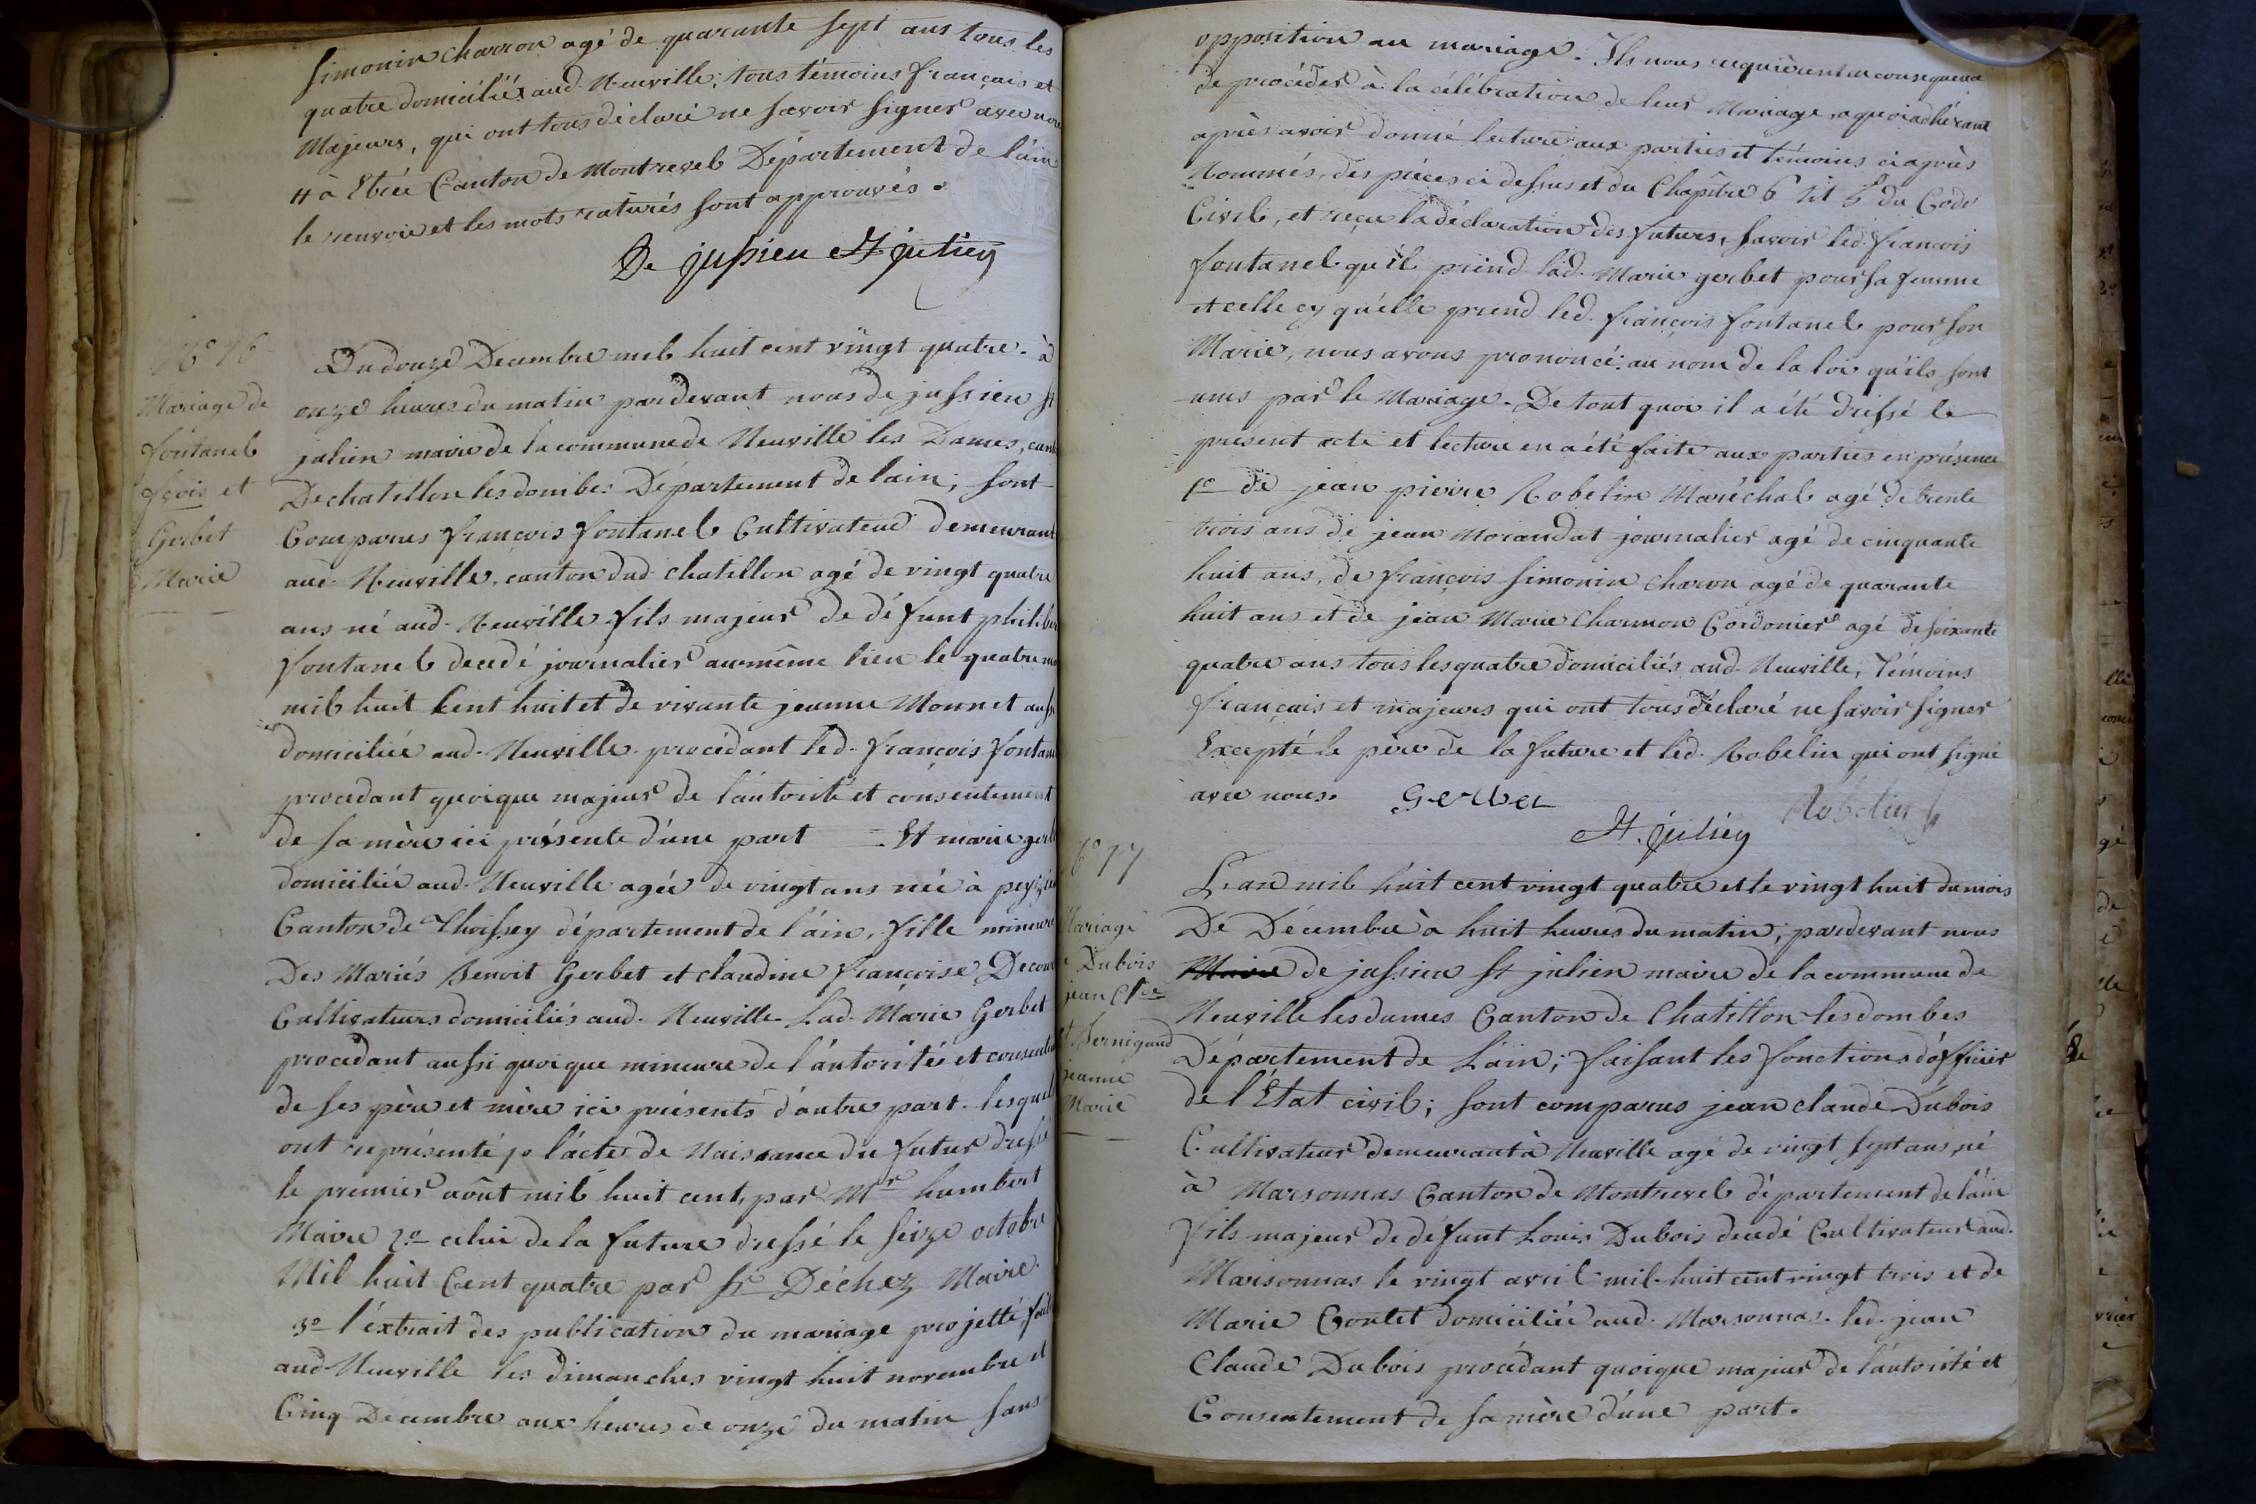 Simonin charron agé de quarante sept ans tous les
quatre domiciliés aud. Neuville; tous témoins français et
Majeurs, qui ont tous déclaré ne savoir signer avec nous
# à Etrée Canton de Montrevel Département de l'ain
le renvoie et les mots raturés sont approuvés.
De jussieu St julien
N° 76
Mariage de
fontanel
fçois et
Gerbet
Marie
Du douze Decembre mil huit cent vingt quatre. à
onze heures du matin pardevant nous de jussieu St
julien maire de la commune de Neuville les Dames, cant
De chatillon les dombes Département de lain; sont
Comparus françois fontanel Cultivateur demeurant
aud. Neuville, canton dud chatillon agé de vingt quatre
ans né aud. Neuville fils majeur de défunt philiber
fontanel decedé journalier au même lieu le quatre
mil huit Cent huit et de vivante jeanne Monnet aussi
domiciliée aud. Neuville. procédant led. françois fontan
procedant quoique majeur de l'autorité et consentement
de sa mère ici présente d'une part = Et marie gerb
domiciliée aud. Neuville agée de vingt ans née à peyzie
Canton de Thoissey département de l'ain, fille mineure
Des Mariés Benoit Gerbet et claudine françoise Decour
Cultivateurs domiciliés aud. Neuville. Lad. Marie Gerbet
procedant aussi quoique mineure de l'autorité et consente
de ses père et mère ici présents d'autre part. lesquels
ont représenté 1° l'acte de Naissance du futur dressé
le premier août mil huit cent, par Mr humbert
Maire 2° celui de la future dressé le seize octobre
Mil huit Cent quatre par Sr Déchez Maire.
3° l'extrait des publications du mariage projetté fait
aud Neuville les dimanches vingt huit novembre et
Cinq Decembre aux heures de onze du matin sans
opposition au mariage. Ils nous requièrent en consequence
de procéder à la célébration de leur Mariage, a quoi adhérant
après avoir donné lecture aux parties et témoins ci après
Nommés, des pièces ci dessus et du Chapitre 6 tit 5 du Code
Civil, et reçu la déclaration des futurs, savoir led. françois
fontanel qu'il prend lad. Marie gerbet pour sa femme
et celle cy qu'elle prend led. françois fontanel pour son
Marie, nous avons prononcé: au nom de la loi qu'ils sont
unis par le Mariage. De tout quoi il a été dressé le
présent acte et lecture en a été faite aux parties en présence
1° de jean pierre Robelin Maréchal agé de trente
trois ans de jean Morandat journalier agé de cinquante
huit ans, de françois simonin charon agé de quarante
huit ans et de jean Marie Charmon Cordonier agé de soixante
quatre ans tous les quatre domiciliés aud. Neuville, Témoins
français et majeurs qui ont tous déclaré ne savoir signer
Excepté le père de la future et led. Robelin qui ont signé
avec nous. Gerbet
St. julien Robelin
N° 77
Mariage
Dubois
jean Cl.de
et Bernigaud
jeanne
Marie
L'an mil huit cent vingt quatre et le vingt huit du mois
De Décembre à huit heures du matin; pardevant nous
Maire de jussieu St julien maire de la commune de
Neuville les dames Canton de Chatillon les dombes
Département de Lain; faisant les fonctions d'officier
de l'Etat civil; sont comparus jean claude Dubois
Cultivateur demeurant à Neuville agé de vingt sept ans, né
à Marsonnas Canton de Montrevel département de l'ain
fils majeur de défunt Louis Dubois decedé Cultivateur aud.
Marsonnas le vingt avril mil huit cent vingt trois et de
Marie Goulet domiciliée aud. Marsonnas. led. jean
Claude Dubois procédant quoique majeur de l'autorité et
Consentement de sa mère d'une part.